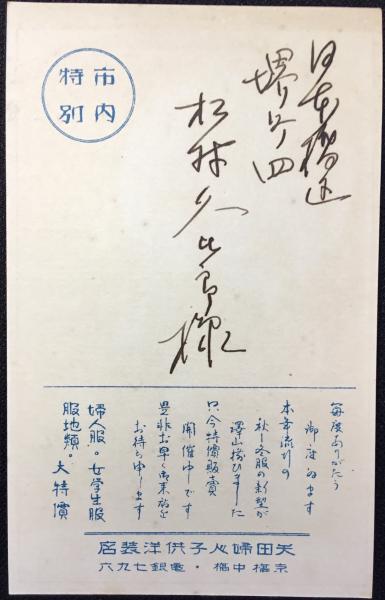 日本橋区
堺町四
松村久
郎様
市内
特別
毎度ありがたう
御座ゐます
本年流行の
秋と冬服の新型が
澤山揃ひました
只今特價販賣
開催中です
是非お早く御来店を
お待ち申します
婦人服。女学生服
服地類。大特價
矢田婦人子供洋装店
京橋中橋・電銀七九六